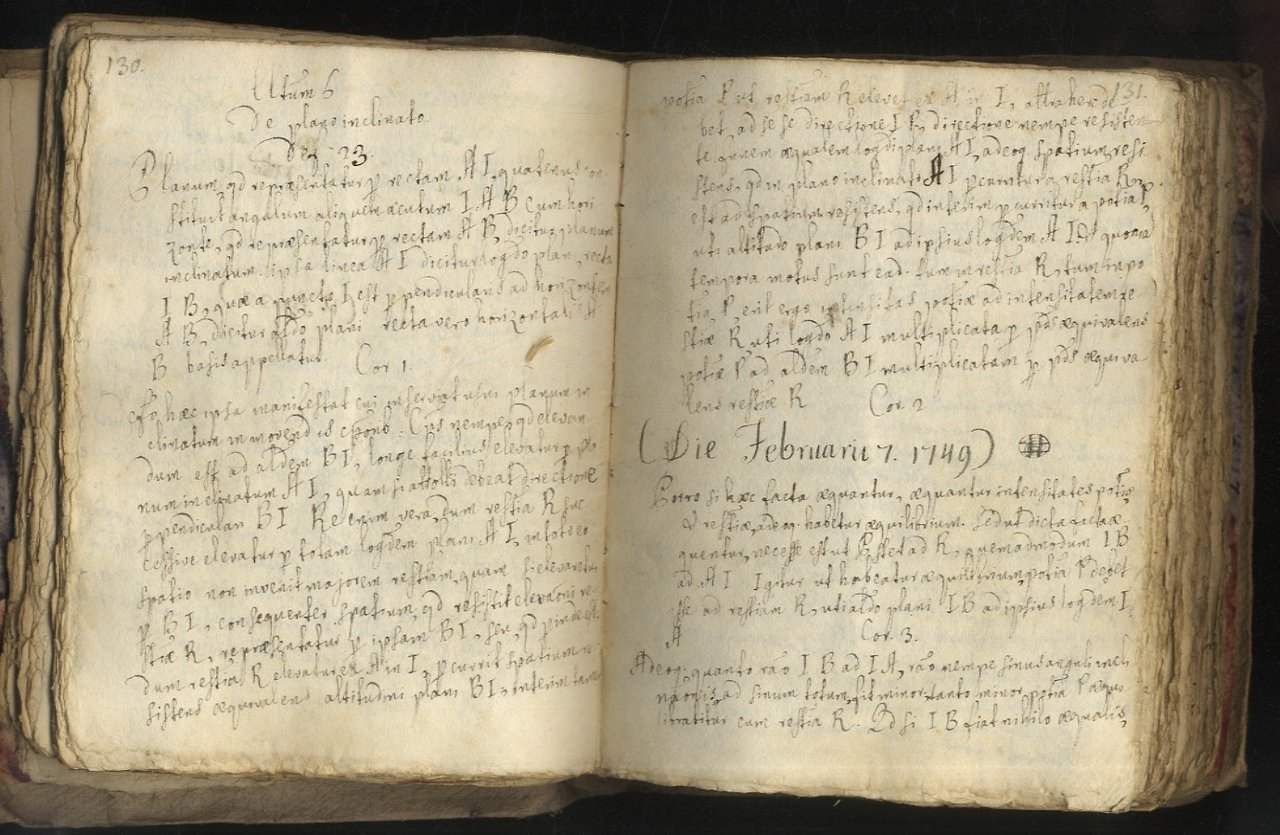 130.
Utum 6
De plano inclinato
Def. 23.
Planum, qd repræsentatur p rectam A I, quatenus con
stituit angulum aliquem acutum I A B cum hori
zonte, qd repræsentatur p rectam A B, dicitur planum
inclinatum. Ipsa linea A I dicitur logdo plani, recta
I B, quæ a puncto I est ppendicularis ad horizontem
A B, dicitur altdo plani recta vero horizontali A
B basis appellatur.
Cor 1.
hæc ipsa manifestat cui inserviat usui planum in
clinatum in movendis Cpus nempe, qd elevan
dum est ad aldem B I, longe facilius elevatur p pla
num inclinatum A I, quam si attolli debeat directione
ppendiculari B I Re enim vera, dum restia R suc
cessive elevatur p totam logdem plani A I, in toto eo
spatio non invenit majorem restiam, quam si elevaretur
p B I, consequenter spatium, qd resistit elevaoni re
stiæ R, repræsentatur p ipsam B I, seu, qd perinde est
dum restia R elevatur ex A in I, pcurrit spatium re
sistens æquivalens altitudini plani B I, interim tamen
131.
potia P ut restiam R elevet ex A in I, attrahere de
bet, ad se se directione I B, directione nempe resisten
te, funem æqualem logdi plani A I, adeoq spatium resi
stens, qd in plano inclinato A I pcurritur a restia R,
est ad spatium resistens, qd interim pcurritur a potia P,
uti altitudo plani B I ad ipsius logdem A I. Et quoniam
tempora motus sunt ead. tum in restia R, tum in po
tia P, erit ergo intensitas potiæ ad intensitatem re
stiæ R uti logdo A I multiplicata p pds æquivalens
potiæ P ad aldem B I multiplicatam p pds æquiva
lens restiæ R
Cor 2
(Die Februarii 7. 1749)
Porro si hæc facta æquantur, æquantur intensitates potiæ
et restiæ, adeoq habetur æquilibrium. Sed ut dicta facta æ
quentur, necesse est ut P sit ad R, quemadmodum I B
ad A I Igitur ut habeatur æquilibrium potia P debet
esse ad restiam R, uti aldo plani I B ad ipsius logdem I
A
Cor. 3.
Adeoq quanto rao I B ad I A, rao nempe sinus anguli incli
naonis, ad sinum totum, fit minor, tanto minor potia P æqui
librabitur cum restia R. Qd si I B fiat nihilo æqualis,